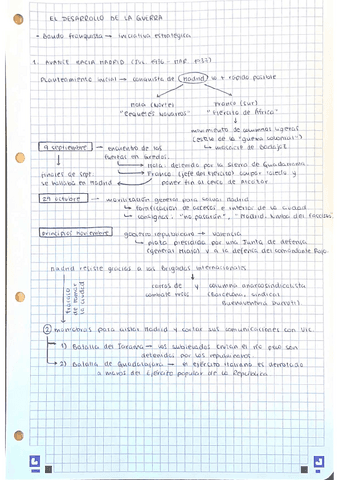 EL DESARROLLO DE LA GUERRA
- Bando franquista → iniciativa estratégica
1. AVANCE HACIA MADRID (JUL 1936 - MAR 1937)
Planteamiento inicial → conquista de Madrid lo + rápido posible
Mola (norte) Franco (sur)
"Requetés navarros" "Ejército de África"
movimiento de columnas ligeras
(estilo de la "guerra colonial")
↳ masacre de Badajoz
9 septiembre → encuentro de los
frentes en
Mola: detenido por la Sierra de Guadarrama
finales de sept. Franco (jefe del Ejército) Toledo y
Madrid poner fin al cerco de Alcázar
29 octubre → movilización general para salvar Madrid
↳ fortificación de accesos e interior de la ciudad
↳ consignas: "no pasarán", "Madrid,
principios noviembre gobierno republicano → Valencia
↳ Madrid, presidida por una Junta de defensa
(general Miaja) y a la defensa del comandante Rojo
Madrid resiste gracias a las brigadas internacionales
y columna anarcosindicalista
(Barcelona, sindical
Buenaventura Durruti)
fracaso de tomar la ciudad
② maniobras para aislar Madrid y cortar sus comunicaciones con
↳ 1) Batalla del Jarama → los sublevados cruzan el río pero son
detenidos por los republicanos.
↳ 2) Batalla de Guadalajara → el ejército italiano es derrotado
a manos del Ejército popular de la República